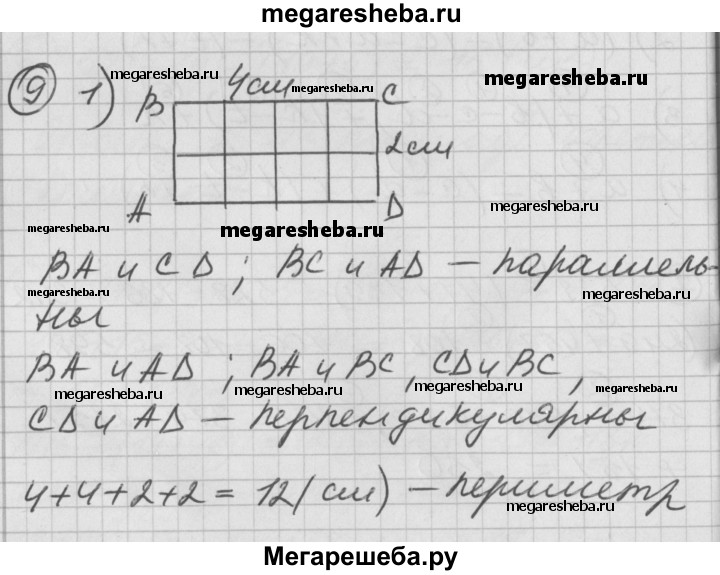 megaresheba.ru
9 1) B 4см C
megaresheba.ru
megaresheba.ru
megaresheba.ru
2см
A D
megaresheba.ru
megaresheba.ru
megaresheba.ru
ВА и СD; ВС и AD – параллель-
megaresheba.ru
megaresheba.ru
ны
ВА и AD; ВА и ВС, CD и ВС,
megaresheba.ru
megaresheba.ru
megaresheba.ru
CD и AD – перпендикулярны
4+4+2+2=12(см) – периметр
megaresheba.ru
Мегарешеба.ру